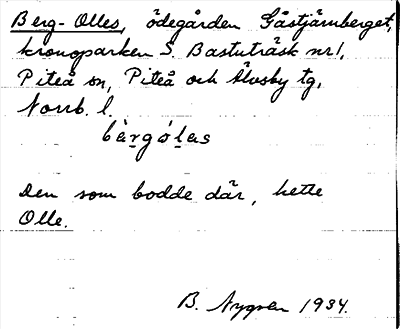 Berg-Olles, ödegården Gåstjärnberget,
kronoparken S. Bastuträsk nr 1,
Piteå sn, Piteå och Älvsby tg,
Norrb. l.
bærgólas
Den som bodde där, hette
Olle.
B. Nygren 1934.